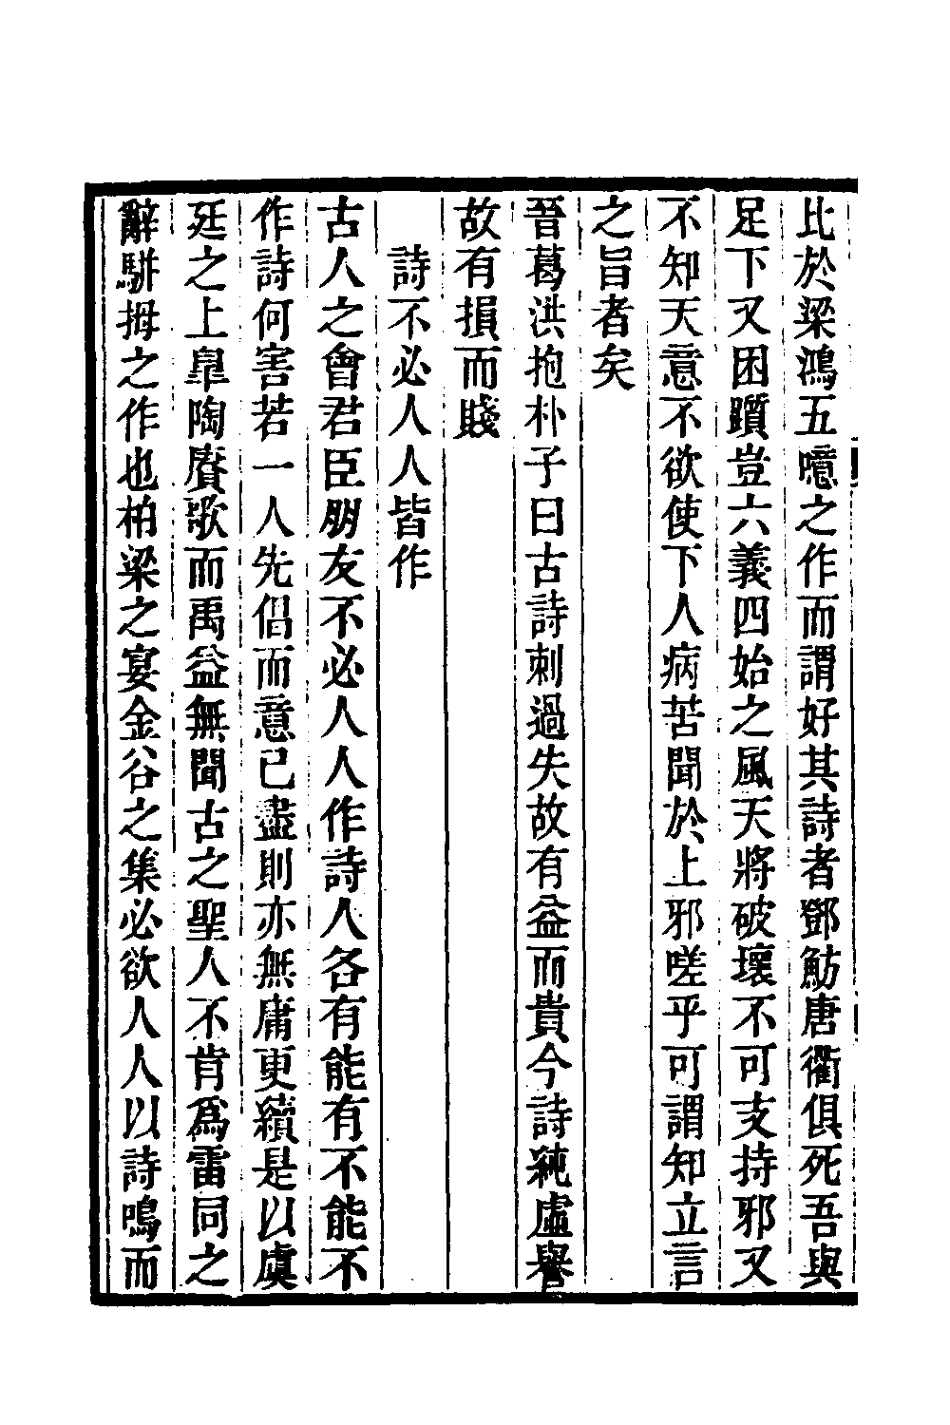 比於梁鴻五噫之作而謂好其詩者鄧魴唐衢俱死吾與
足下又困躓豈六義四始之風天將破壞不可支持邪又
不知天意不欲使下人病苦聞於上邪嗟乎可謂知立言
之旨者矣
晉葛洪抱朴子曰古詩刺過失故有益而貴今詩純虛譽
故有損而賤
詩不必人人皆作
古人之會君臣朋友不必人人作詩人各有能有不能不
作詩何害若一人先倡而意已盡則亦無庸更續是以虞
廷之上臯陶賡歌而禹益無聞古之聖人不肯爲雷同之
辭駢拇之作也柏梁之宴金谷之集必欲人人以詩鳴而